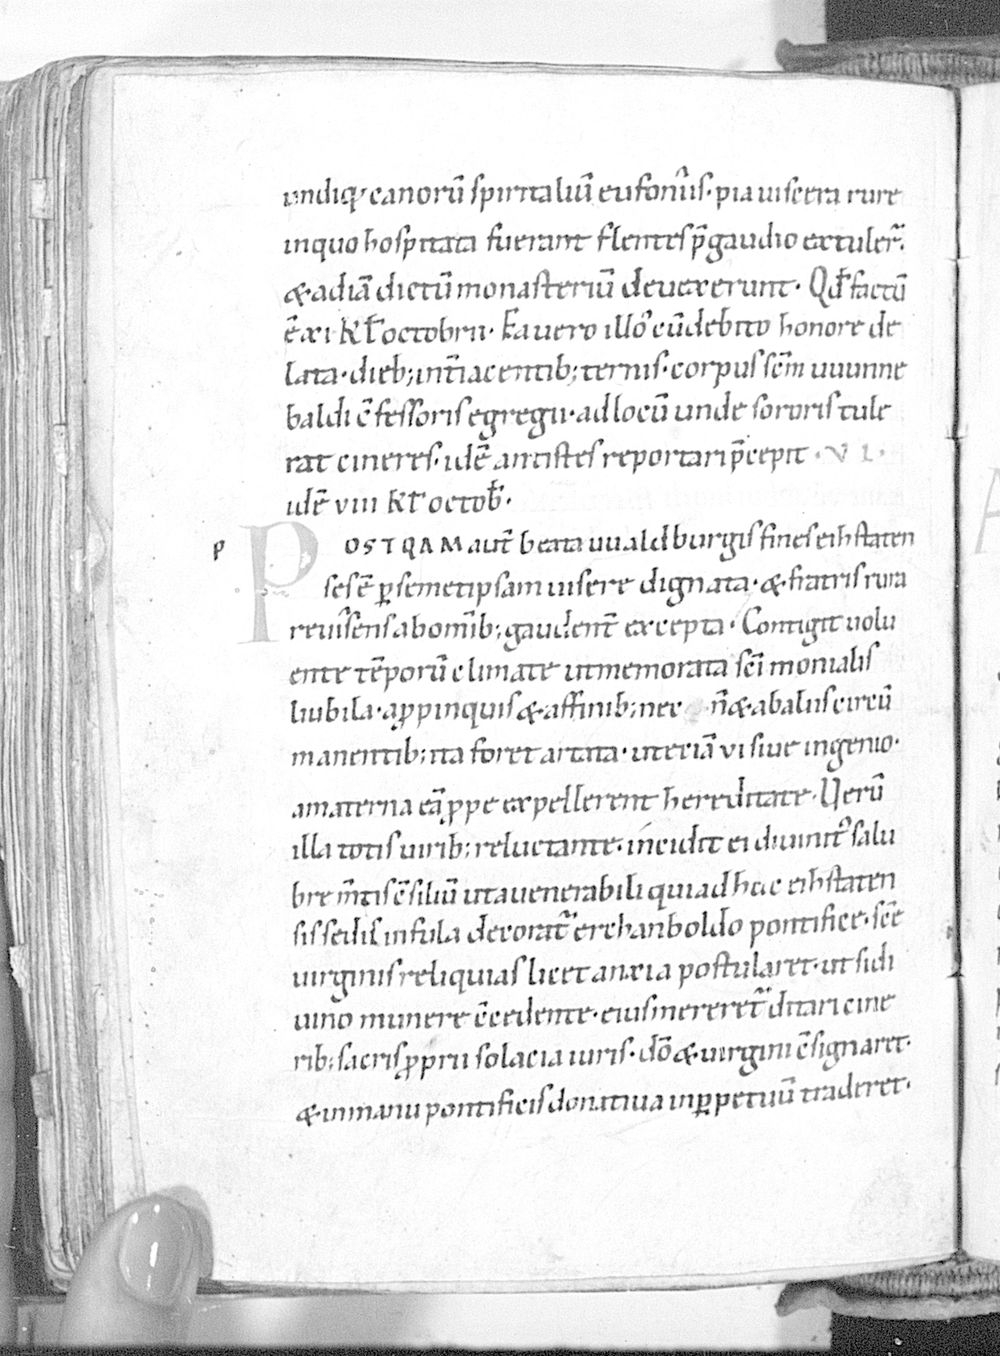 undiq; canorū spiritaliū eufonııs· pia uiscera rure
inquo hospitata fuerant flentes p̄gaudio extuler̄.
& adiā dictū monasteriū deuexerunt· Qđ factū
ē xi kƚ octobrii· Ea uero illo cū debito honore de
lata· dieb; int̄iacentib; ternis· corpus scm̄ uuunne
baldi c̄fessoris egregii· ad locū unde sororis tule
rat cineres· idē antistes reportari p̄cepit · VI·
idē viii kƚ octob̄·
P
POSTQAM aut̄ beata uualdburgis fines eihstaten
ses ē ꝑ semetipsam uisere dignata· & fratris rura
reuisens abomīb; gaudent̄ excepta· Contigit uolu
ente tēporū climate ut memorata sc̄i monialis
liubila· appinquis & affinib; nec n̄ & ab aliis circū
manentib; ita foret artata· ut etiā vi siue ingenio·
amaterna eā ꝓpe expellerent hereditate· Verū
illa totis uirib; reluctante· incidit ei diuinit᷒ salu
bre m̄tis c̄siliū uta uenerabili qui ad hęc eihstaten
sis sedis infula decorat᷒ erchanboldo pontifice· sc̄e
uirginis reliquias licet anxia postularet· ut si di
uino munere c̄cedente· eius mereret᷒ ditari cine
rib; sacris ꝓprii solacia iuris· dō & uirgini c̄signaret·
& inmanu pontificis donatiua inꝑpetuū traderet·